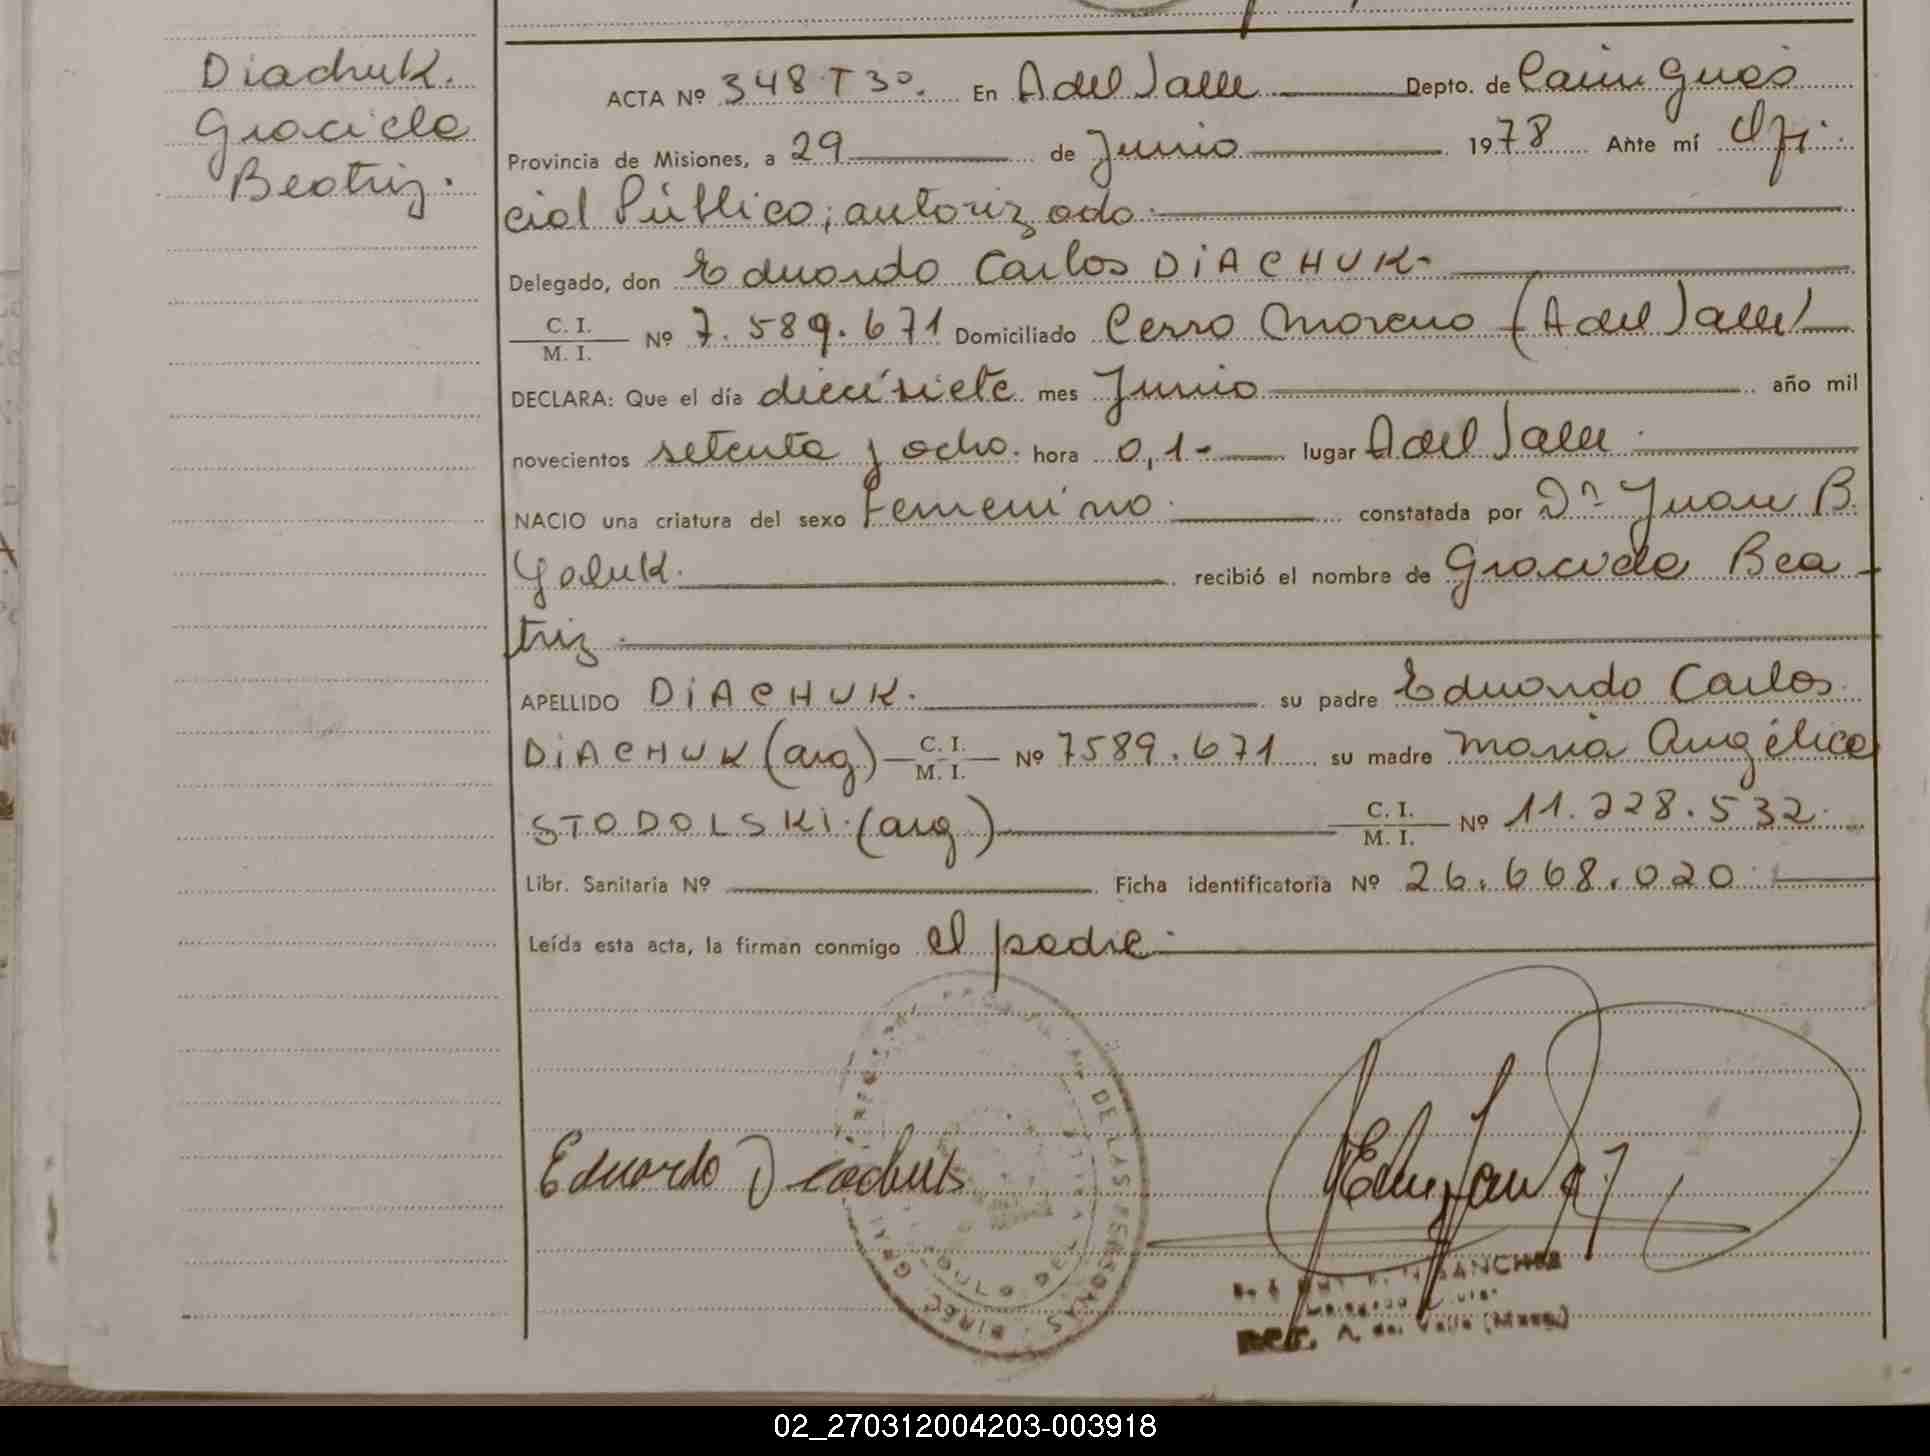 Diachuk.
Graciela
Beatriz.
ACTA Nº 348 T 3º. En A del Valle Depto. de Cainguás
Provincia de Misiones, a 29 de Junio 1978 Ante mí Ofi-
cial Público, autorizado
Delegado, don Eduardo Carlos DiACHUK
C. I.
M. I. Nº 7.589.671 Domiciliado Cerro Moreno (A del Valle)
DECLARA: Que el día diecisiete mes Junio año mil
novecientos setenta y ocho. hora 0,1- lugar A del Valle
NACIO una criatura del sexo Femenino constatada por Dn Juan B.
recibió el nombre de Graciela Bea-
triz
APELLIDO DiACHUK. su padre Eduardo Carlos
DiACHUK (arg) C. I. Nº 7589.671 su madre Maria Angélica
M. I.
STODOLSKi. (arg) C. I. Nº 11.228.532
M. I.
Libr. Sanitaria Nº Ficha identificatoria Nº 26.668.020
Leída esta acta, la firman conmigo el padre
DE LAS PERSONAS DIREC. GRAL
Eduardo Diachuk
SANCHEZ
A. del Valle
02_270312004203-003918